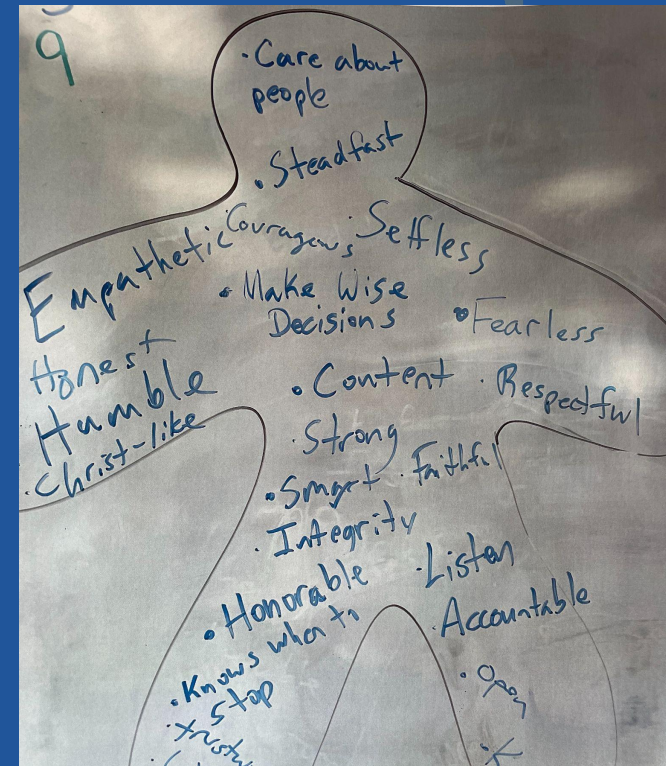 9
· Care about
people
· Steadfast
Empathetic
Courageous
· Selfless
· Make Wise
Decisions
· Fearless
Honest
Humble
· Christ-like
· Content
· Respectful
· Strong
· Smart
· Faithful
· Integrity
· Listen
· Honorable
· Accountable
· Knows when to
Stop
· Open